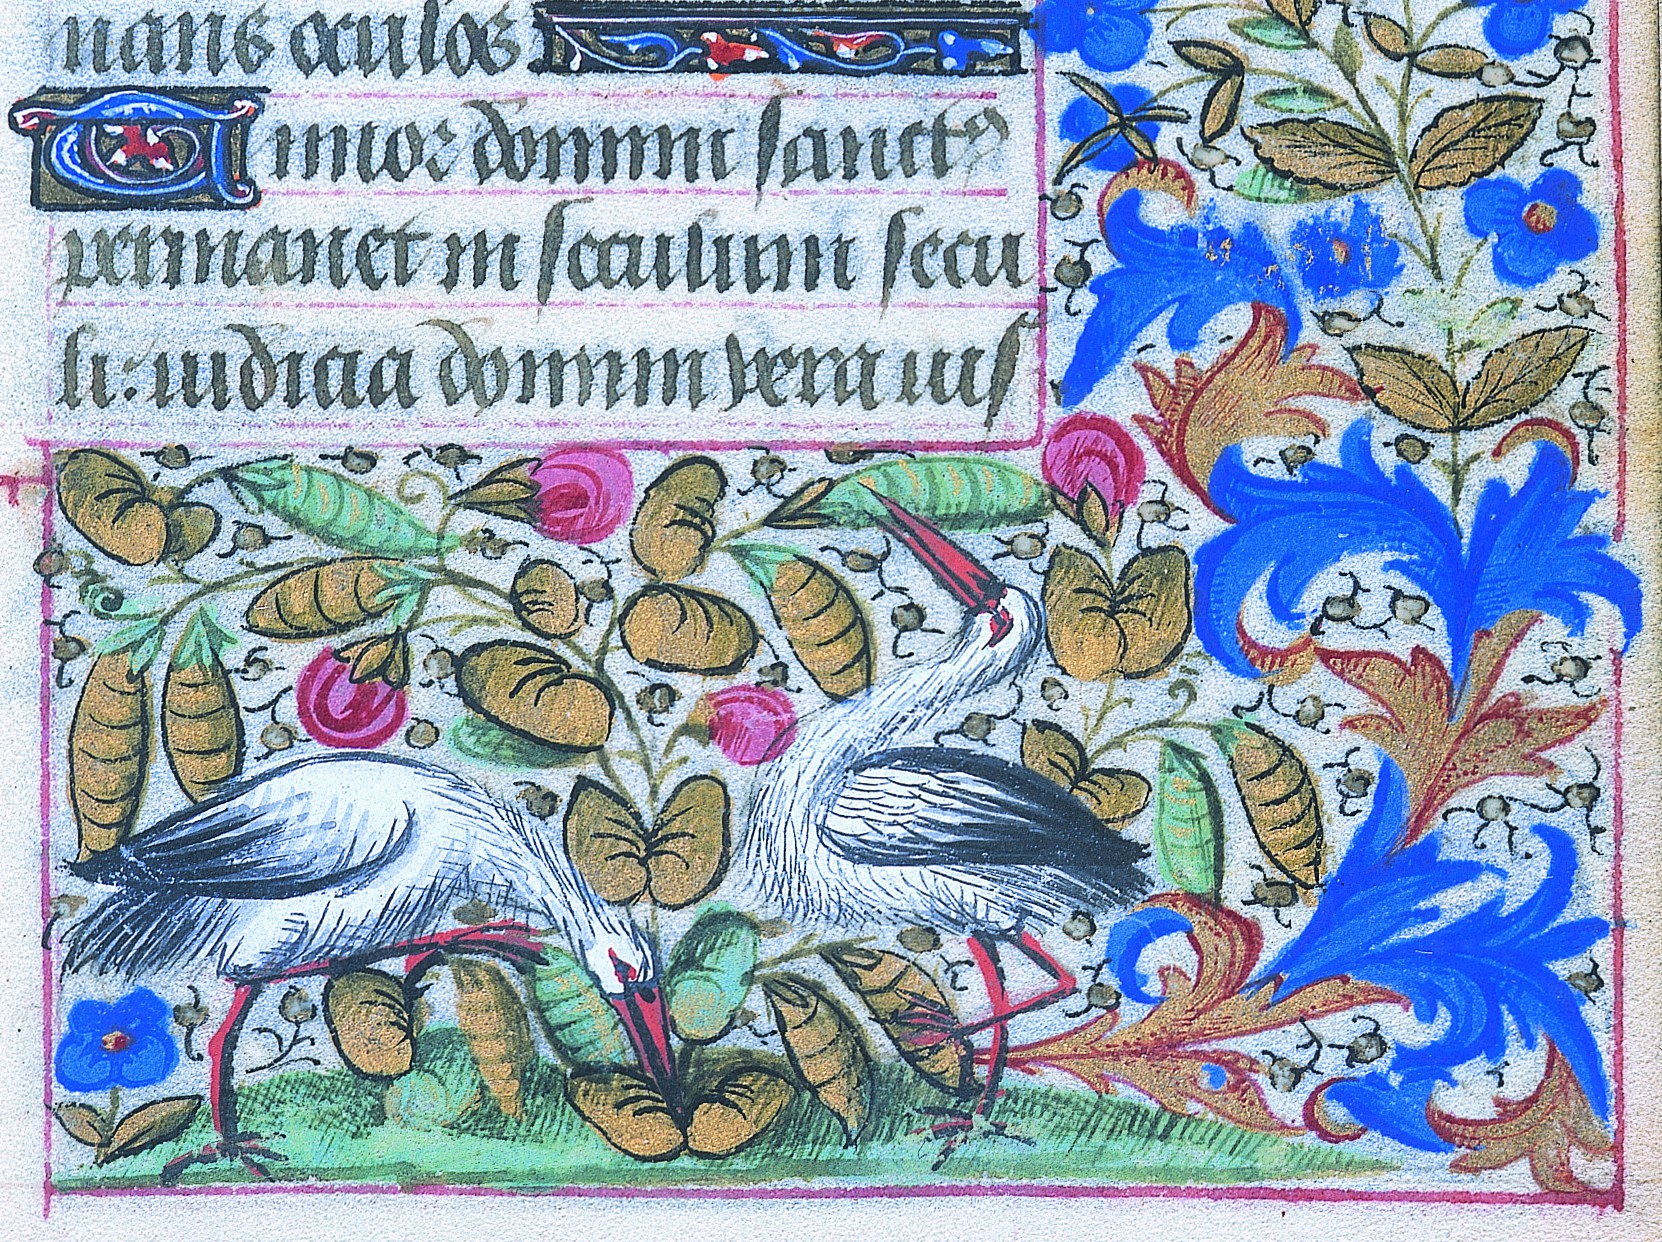 nans oculos
Timor domini sanctꝰ
permanet in seculum secu
li: iudicia domini vera iuſ